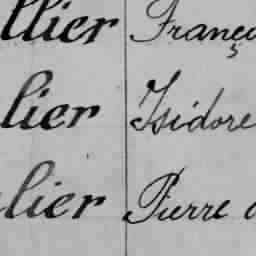 llier Franço
lier Isidore
lier Pierre